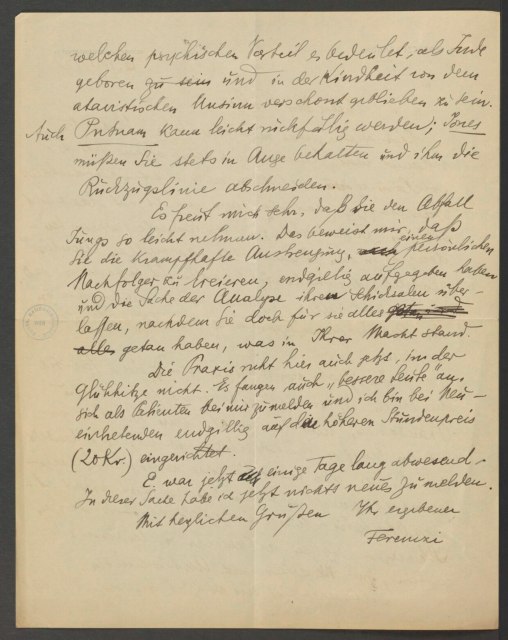 welchen psychischen Vorteil es bedeutet, als Jude
geboren zu sein und in der Kindheit von dem
atavistischen Unsinn verschont geblieben zu sein.
Auch Putnam kann leicht rückfällig werden; Jones
müßen Sie stets in Auge behalten und ihm die
Rückzugslinie abschneiden.
Es freut mich sehr, daß Sie den Abfall
Jungs so leicht nehmen. Das beweist mir, daß
Sie die krampfhafte Anstrengung, einen persönlichen
Nachfolger zu kreieren, endgiltig aufgegeben haben
und die Sache der Analyse ihren Schicksalen über-
lassen, nachdem Sie doch für sie alles
alles getan haben, was in Ihrer Macht stand.
Die Praxis ruht hier auch jetzt, in der
Glühhitze nicht. Es fangen auch „bessere Leute" an,
sich als Clienten bei mir zu melden und ich bin bei Neu-
eintretenden endgiltig auf die höheren Stundenpreis
(20 Kr.) eingerichtet.
E. war jetzt einige Tage lang abwesend –
In dieser Sache habe ich jetzt nichts neues zu melden.
Mit herzlichen Grüßen Ihr ergebener
Ferenczi